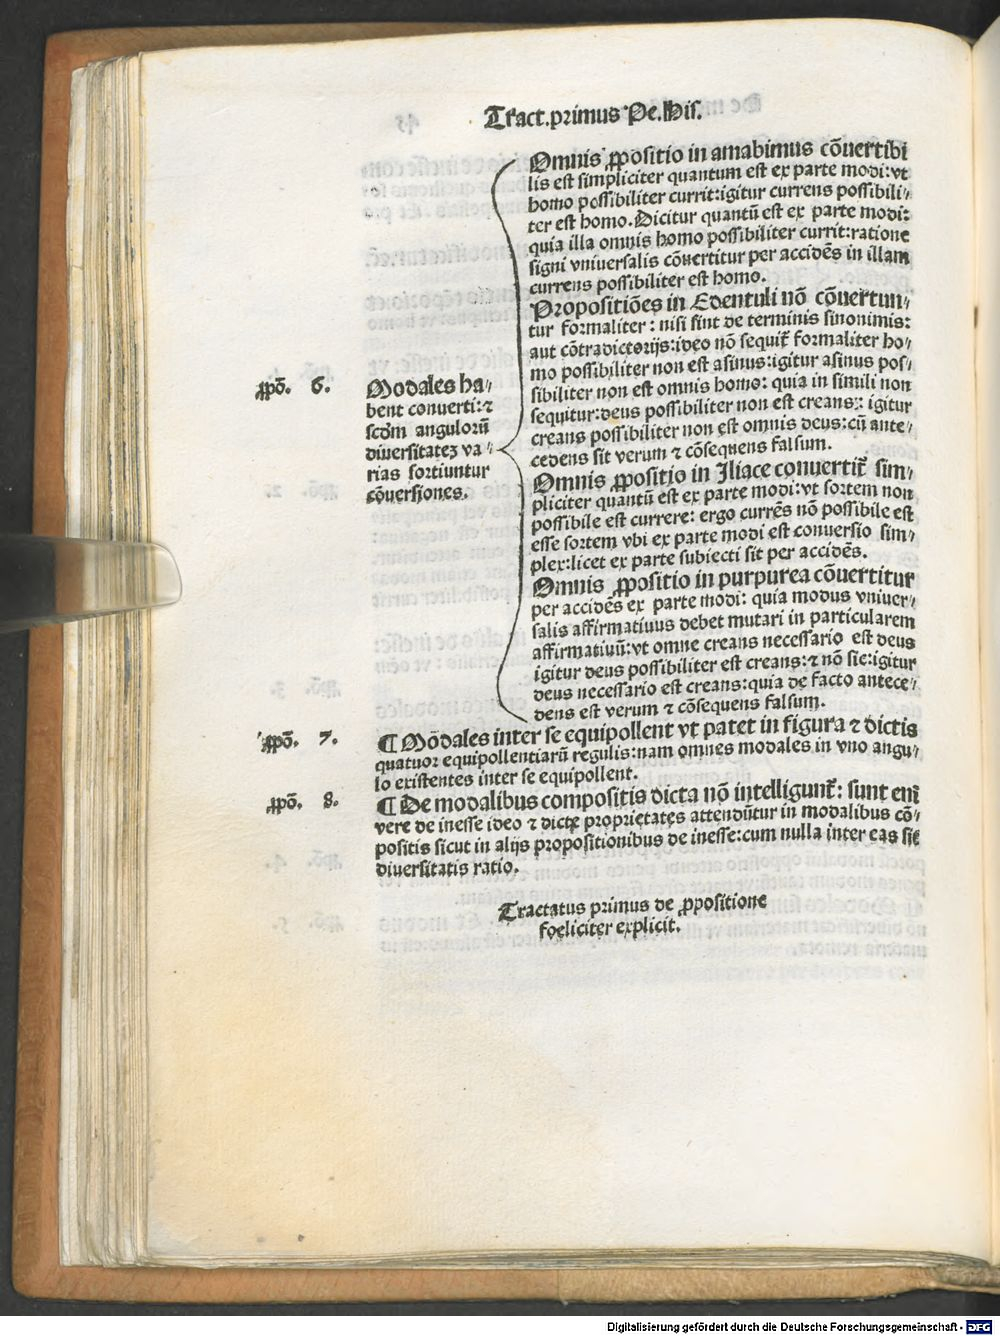 Tract. primus Pe. His.
Omnis ꝓpositio in amabimus cōuertibi
lis est simpliciter quantum est ex parte modi: vt
homo possibiliter currit: igitur currens possibili⸗
ter est homo. Dicitur quantū est ex parte modi:
quia illa omnis homo possibiliter currit: ratione
signi vniuersalis cōuertitur per accidēs in illam
currens possibiliter est homo.
Propositiōes in Edentuli nō cōuertun⸗
tur formaliter: nisi sint de terminis sinonimis:
aut cōtradictorijs: ideo nō sequit̃ formaliter ho⸗
mo possibiliter non est asinus: igitur asinus pos⸗
sibiliter non est omnis homo: quia in simili non
sequitur: deus possibiliter non est creans: igitur
creans possibiliter non est omnis deus: cū ante⸗
cedens sit verum ⁊ cōsequens falsum.
ꝓpō. 6.
Modales ha⸗
bent conuerti: ⁊
scd̃m angulorū
diuersitatez va⸗
rias sortiuntur
cōuersiones.
Omnis ꝓpositio in Iliace conuertit̃ sim⸗
pliciter quantū est ex parte modi: vt sortem non
possibile est currere: ergo currēs nō possibile est
esse sortem vbi ex parte modi est conuersio sim⸗
plex: licet ex parte subiecti sit per accidēs.
Omnis ꝓpositio in purpurea cōuertitur
per accidēs ex parte modi: quia modus vniuer⸗
salis affirmatiuus debet mutari in particularem
affirmatiuū: vt omne creans necessario est deus
igitur deus possibiliter est creans: ⁊ nō sic: igitur
deus necessario est creans: quia de facto antece⸗
dens est verum ⁊ cōsequens falsum.
ꝓpō. 7.
¶ Mōdales inter se equipollent vt patet in figura ⁊ dictis
quatuor equipollentiarū regulis: nam omnes modales in vno angu⸗
lo existentes inter se equipollent.
ꝓpō. 8.
¶ De modalibus compositis dicta nō intelligunt̃: sunt eni̅
vere de inesse ideo ⁊ dicte proprietates attendūtur in modalibus cō⸗
positis sicut in alijs propositionibus de inesse: cum nulla inter eas sit
diuersitatis ratio.
Tractatus primus de ꝓpositione
foeliciter explicit.
Digitalisierung gefördert durch die Deutsche Forschungsgemeinschaft - DFG